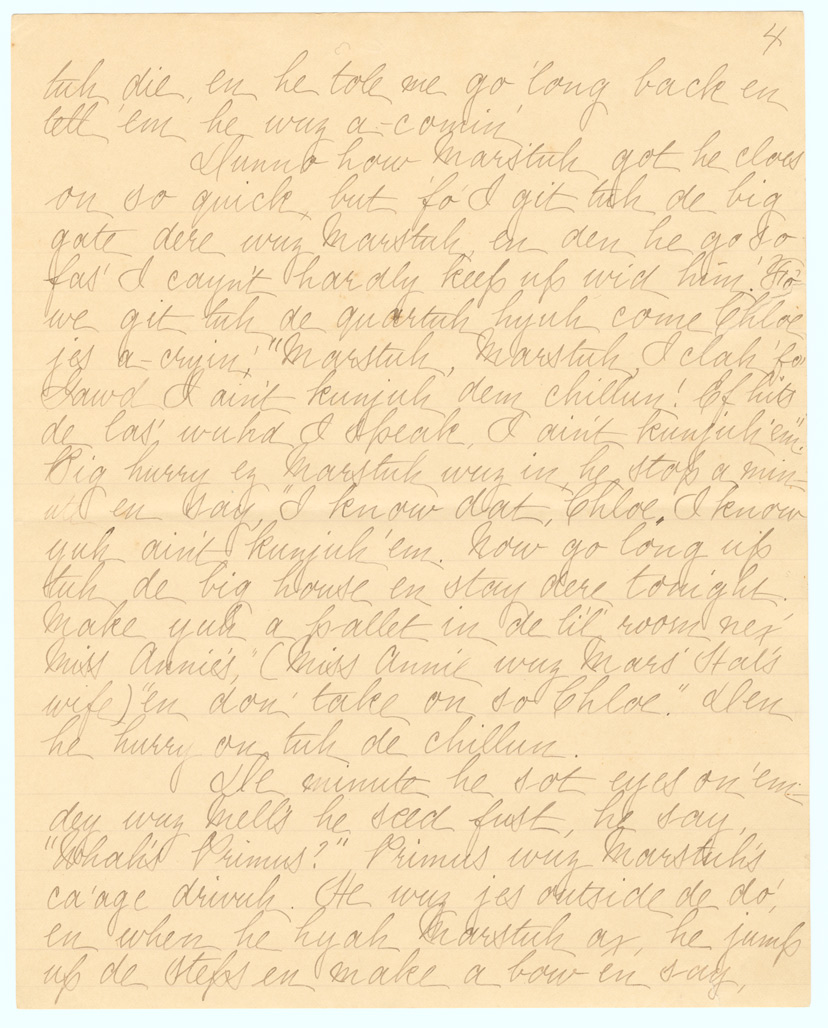 4
tuh die, en he tole me go 'long back en
tell 'em he wuz a-comin'
Dunno how Marstuh got he cloes
on so quick, but 'fo' I git tuh de big
gate dere wuz Marstuh, en den he go so
fas' I cayn't hardly keep up wid him. 'Fo'
we git tuh de quartuh hyuh come Chloe
jes a-cryin', "Marstuh, Marstuh, I clah 'fo'
Gawd I ain't kunjuh dem chillun! Ef hits
de las' wuhd I speak, I ain't kunjuh 'em".
Big hurry ez Marstuh wuz in, he stop a min-
ute en say, "I know dat, Chloe, I know
yuh ain't kunjuh 'em. Now go long up
tuh de big house en stay dere tonight.
Make yuh a pallet in de li'l' room nex'
Miss Annie's," (Miss Annie wuz Mars' Hal's
wife) "en don' take on so Chloe." Den
he hurry on tuh de chillun.
De minute he sot eyes on 'em-
dey wuz Nell's he seed fust, he say,
"Whah's Primus?" Primus wuz Marstuh's
ca'age drivuh. He wuz jes outside de do',
en when he hyah Marstuh ax, he jump
up de steps en make a bow en say,